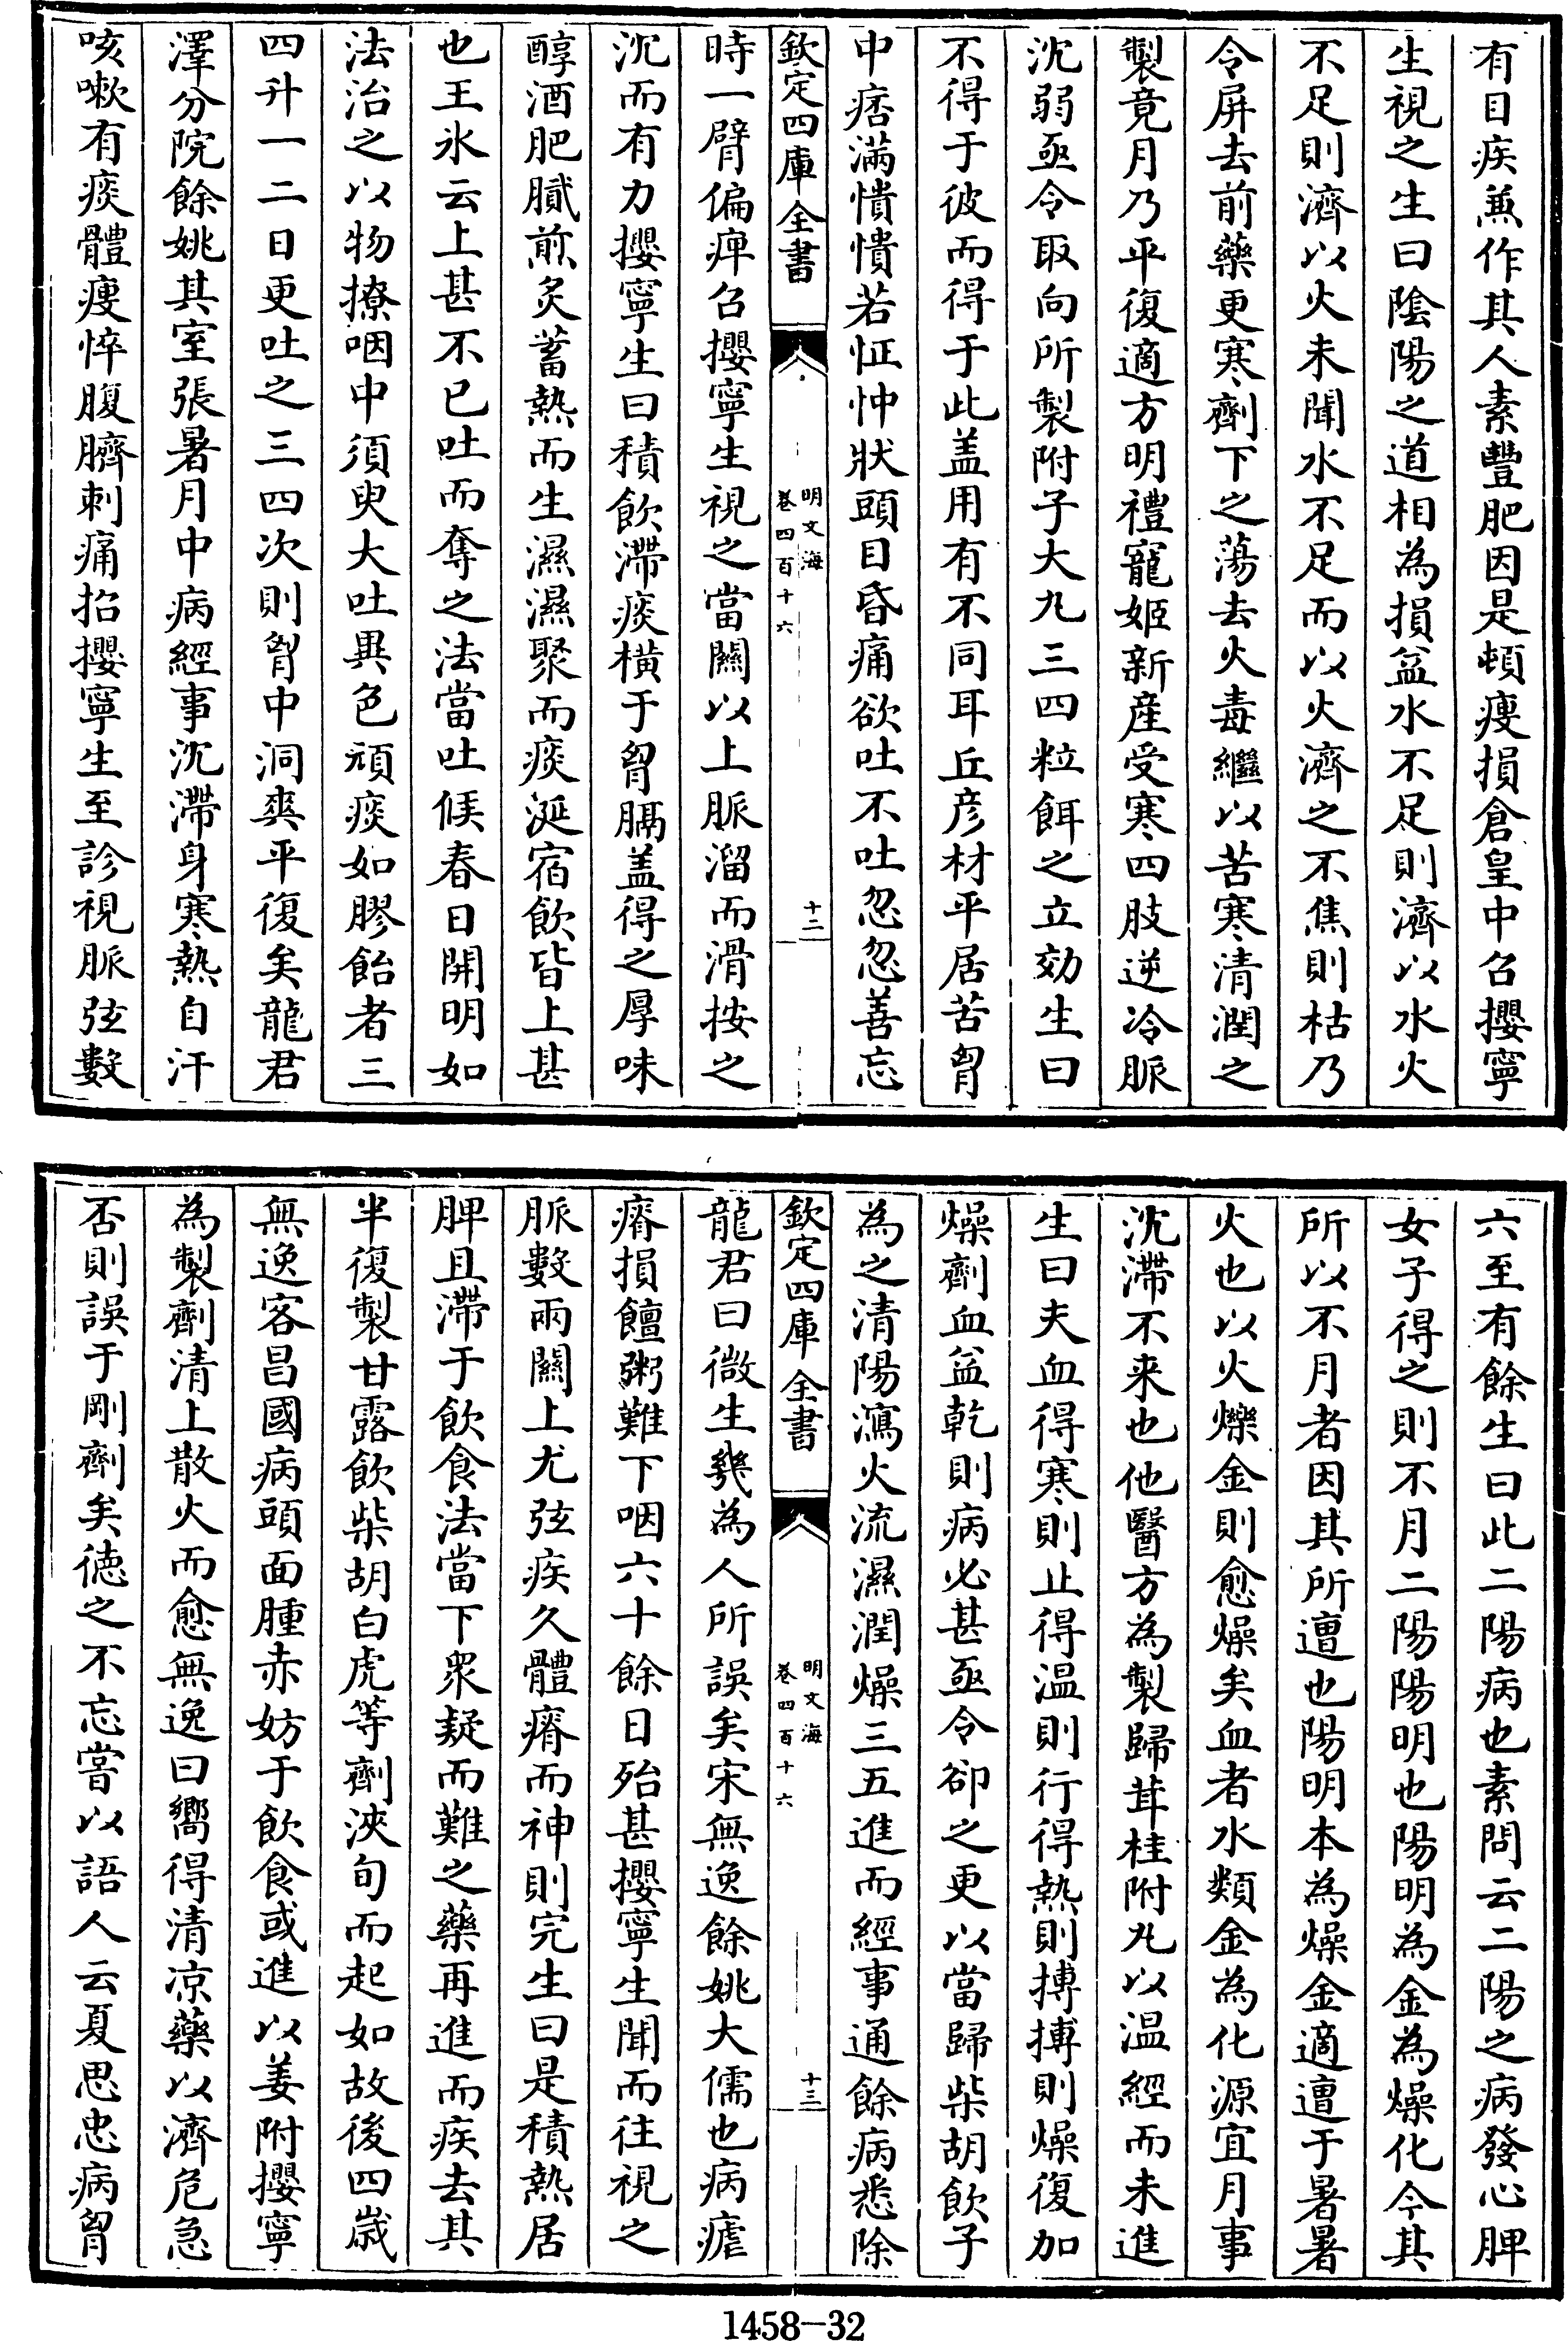 有目疾兼作其人素豐肥因是頓瘦損倉皇中召攖寧
生視之生曰陰陽之道相為損益水不足則濟以水火
不足則濟以火未聞水不足而以火濟之不焦則枯乃
令屏去前藥更寒劑下之蕩去火毒繼以苦寒清潤之
製竟月乃平復適方明禮寵姬新産受寒四肢逆冷脈
沈弱亟令取向所製附子大九三四粒餌之立効生曰
不得于彼而得于此盖用有不同耳丘彦材平居苦胷
中痞滿憒憒若怔忡狀頭目昏痛欲吐不吐忽忽善忘
欽定四庫全書
明文海
卷四百十六
十二
時一臂偏痺召攖寧生視之當關以上脈溜而滑按之
沈而有力攖寧生曰積飲滯痰横于胷膈盖得之厚味
醇酒肥膩煎炙蓄熱而生濕濕聚而痰涎宿飲皆上甚
也王氷云上甚不已吐而奪之法當吐候春日開明如
法治之以物撩咽中須臾大吐異色頑痰如膠飴者三
四升一二日更吐之三四次則胷中洞爽平復矣龍君
澤分院餘姚其室張暑月中病經事沈滯身寒熱自汗
咳嗽有痰體瘦悴腹臍刺痛招攖寧生至診視脈弦數
六至有餘生曰此二陽病也素問云二陽之病發心脾
女子得之則不月二陽陽明也陽明為金為燥化今其
所以不月者因其所遭也陽明本為燥金適遭于暑暑
火也以火爍金則愈燥矣血者水類金為化源宜月事
沈滯不来也他醫方為製歸茸桂附丸以温經而未進
生曰夫血得寒則止得温則行得熱則搏搏則燥復加
燥劑血益乾則病必甚亟令卻之更以當歸柴胡飲子
為之清陽瀉火流濕潤燥三五進而經事通餘病悉除
欽定四庫全書
明文海
卷四百十六
十三
龍君曰微生幾為人所誤矣宋無逸餘姚大儒也病瘧
瘠損饘粥難下咽六十餘日殆甚攖寧生聞而往視之
脈數兩關上尤弦疾久體瘠而神則完生曰是積熱居
脾且滯于飲食法當下衆疑而難之藥再進而疾去其
半復製甘露飲柴胡白虎等劑浹旬而起如故後四歳
無逸客昌國病頭面腫赤妨于飲食或進以姜附攖寧
為製劑清上散火而愈無逸曰嚮得清凉藥以濟危急
否則誤于剛劑矣徳之不忘嘗以語人云夏思忠病胷
1458-32